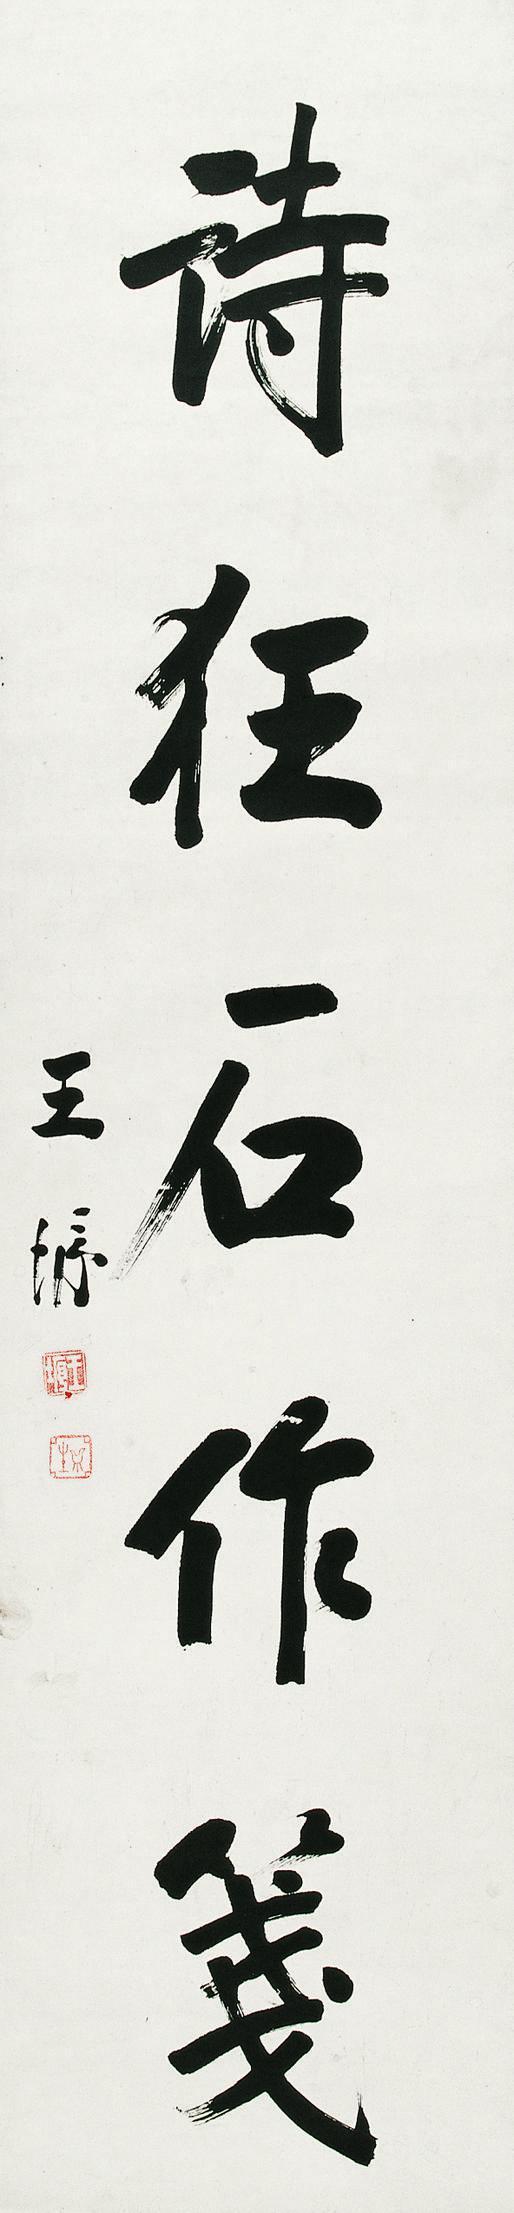 詩狂石作箋
王